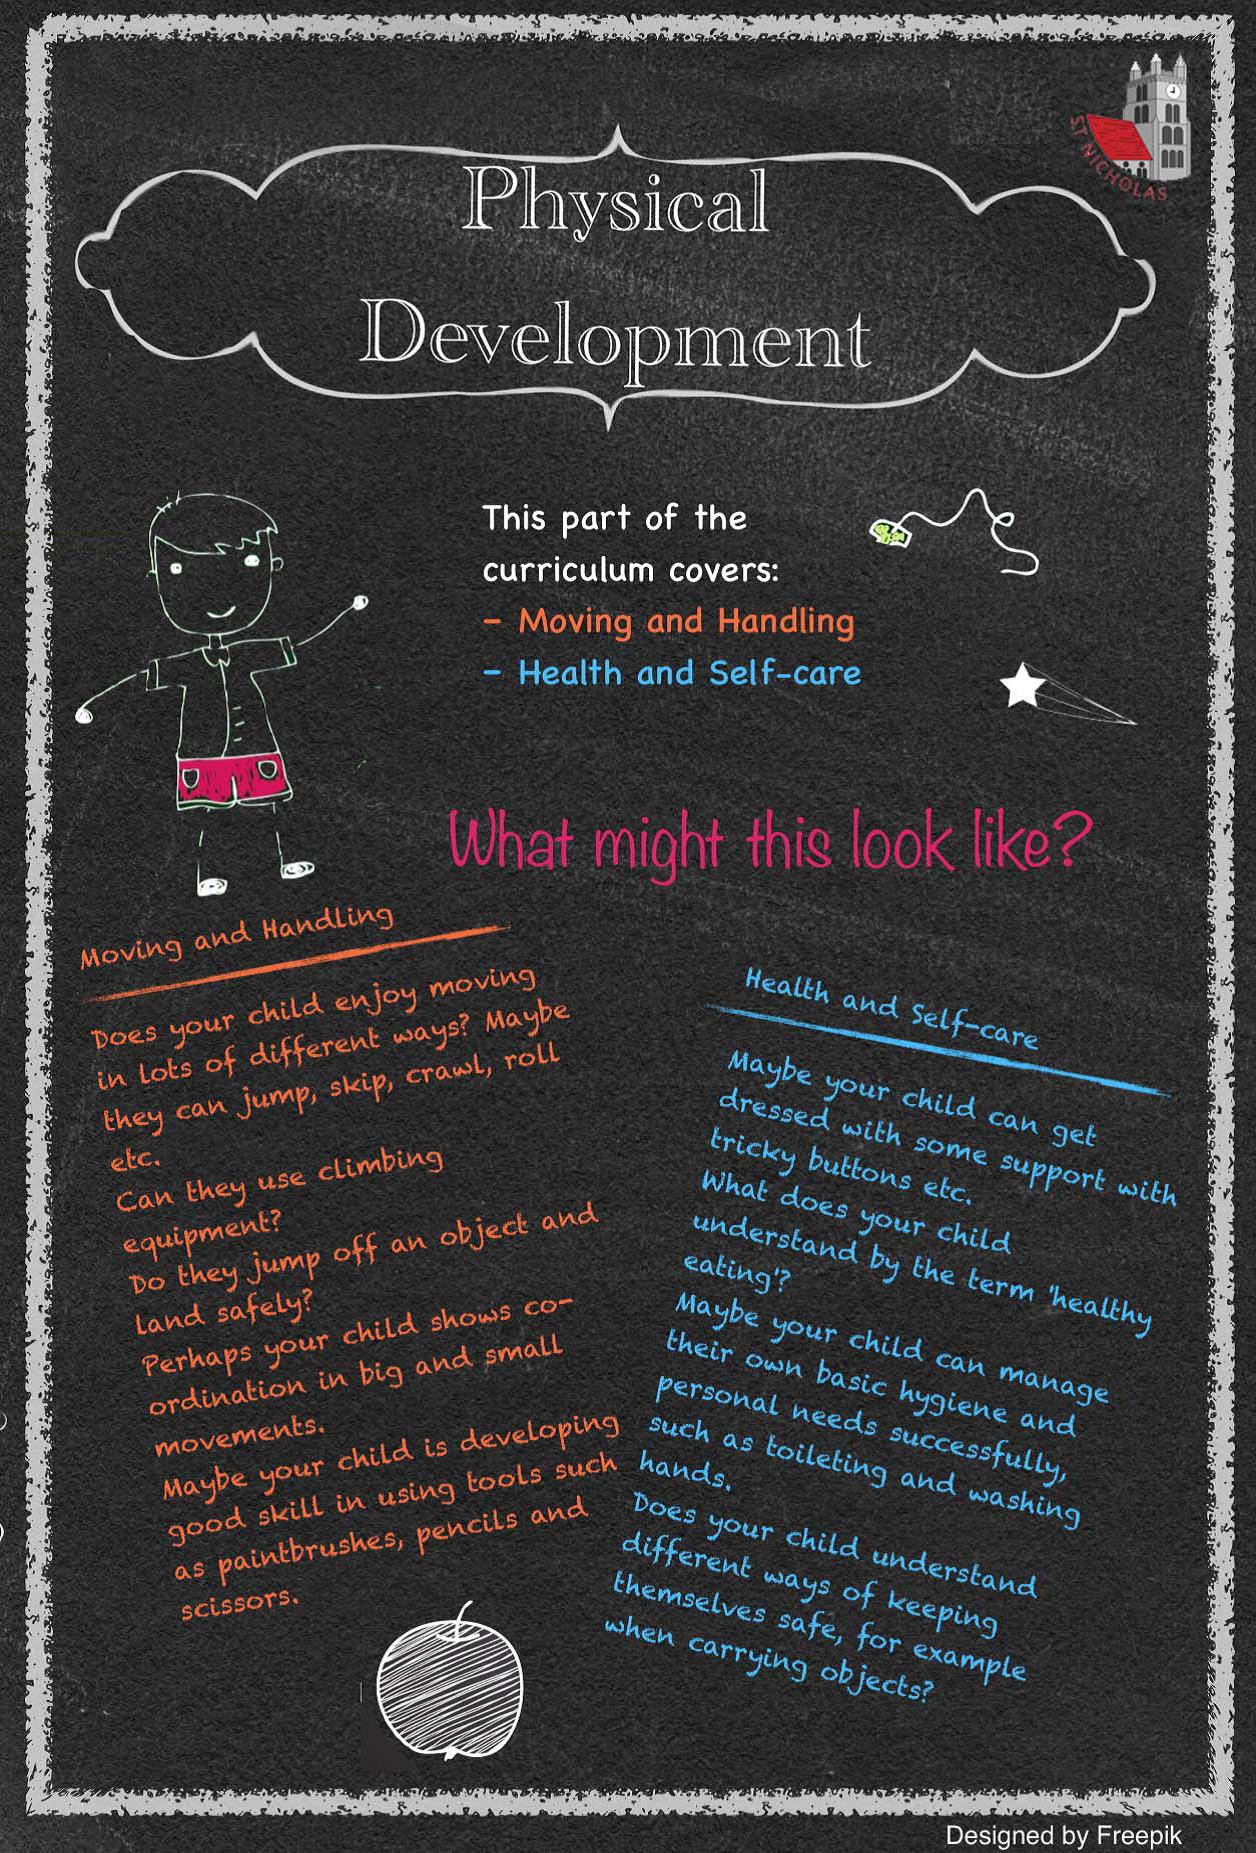 ST NICHOLAS
Physical
Development
This part of the
curriculum covers:
- Moving and Handling
- Health and Self-care
What might this look like?
Moving and Handling
Does your child enjoy moving
in lots of different ways? Maybe
they can jump, skip, crawl, roll
etc.
Can they use climbing
equipment?
Do they jump off an object and
land safely?
Perhaps your child shows co-
ordination in big and small
movements.
Maybe your child is developing
good skill in using tools such
as paintbrushes, pencils and
scissors.
Health and Self-care
Maybe your child can get
dressed with some support with
tricky buttons etc.
What does your child
understand by the term 'healthy
eating'?
Maybe your child can manage
their own basic hygiene and
personal needs successfully,
such as toileting and washing
hands.
Does your child understand
different ways of keeping
themselves safe, for example
when carrying objects?
Designed by Freepik